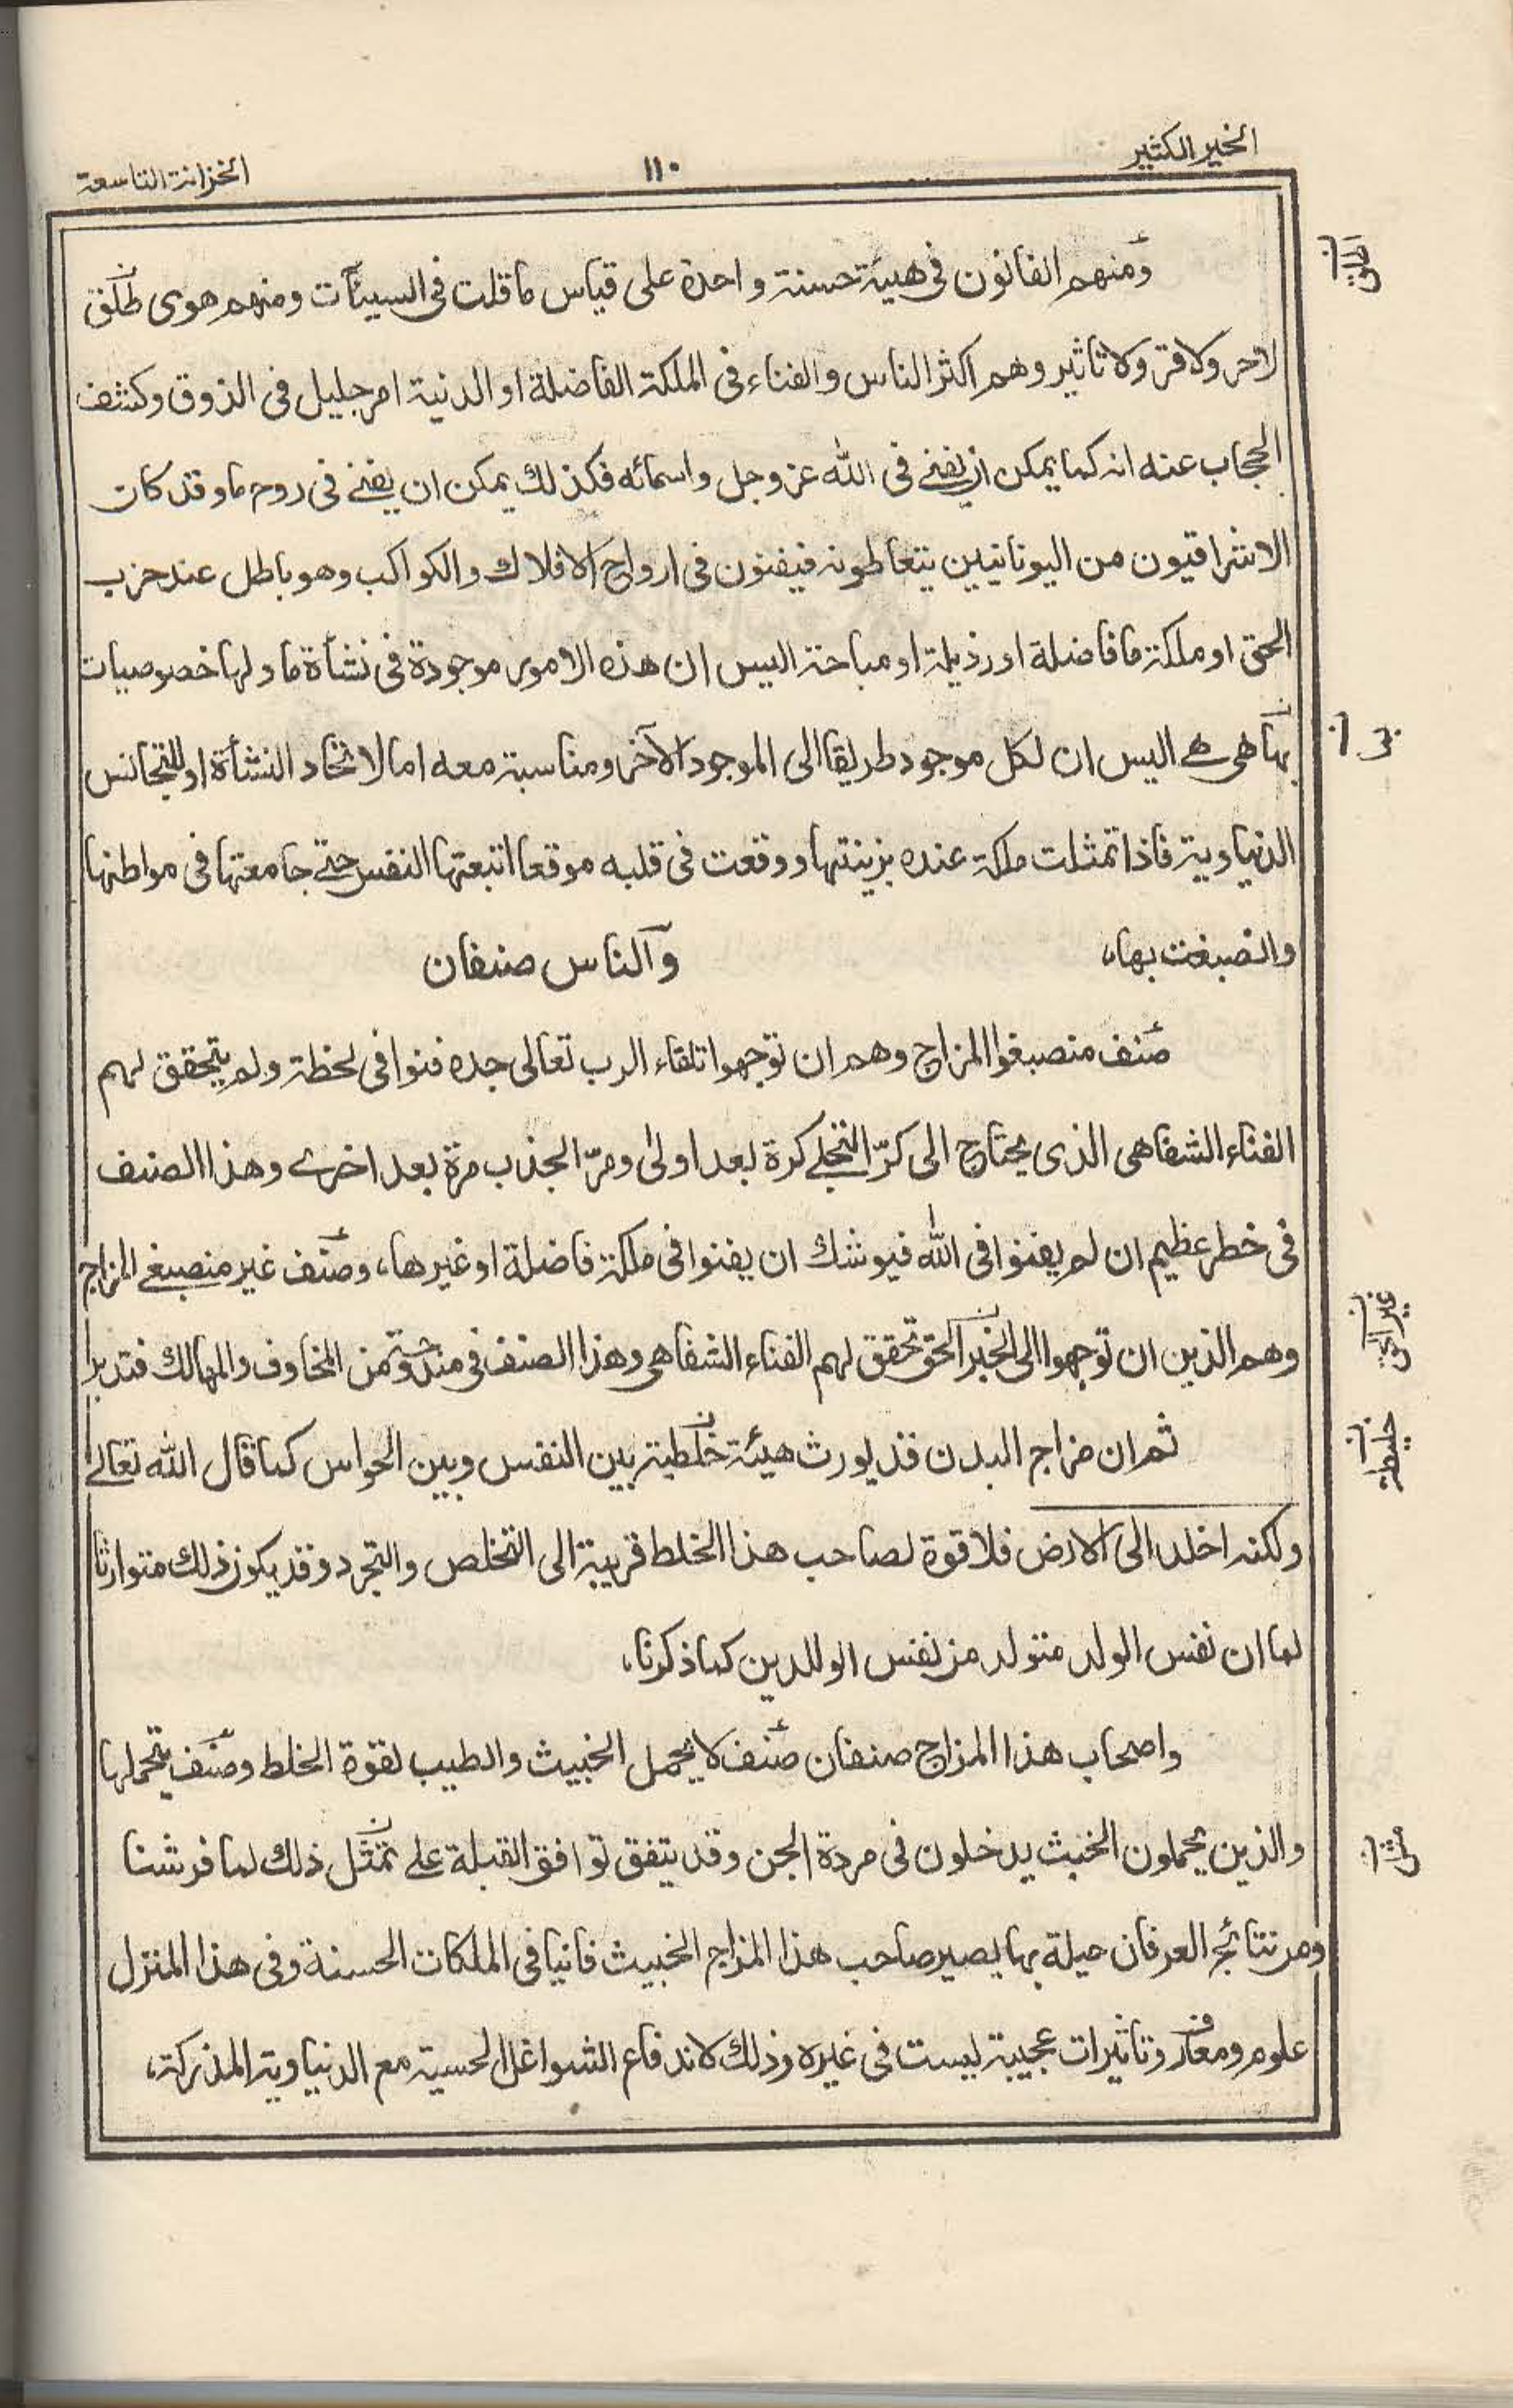 الخير الكثير
١١٠
الخزانة التاسعة
ومنهم الفانون فى هيئة حسنة واحدة على قياس ما قلت فى السيئات ومنهم هوى طلق
لاحر ولا قر ولا تاثير وهم اكثر الناس والفناء فى الملكة الفاضلة او الدنية امر جليل فى الذوق وكشف
الحجاب عنه انه كما يمكن ان يفنے فى الله عز وجل واسمائه فكذلك يمكن ان يفنے فى روح ما وقد كان
الاشراقيون من اليونانيين يتعاطونه فيفنون فى ارواح الافلاك والكواكب وهو باطل عند حزب
الحق او ملكة ما فاضلة او رذيلة او مباحة اليس ان هذه الامور موجودة فى نشأة ما ولها خصوصيات
بها هى هے اليس ان لكل موجود طريقا الى الموجود الآخر ومناسبة معه اما لاتحاد النشأة او للتجانس
الدنياوية فاذا تمثلت ملكة عنده بزينتها ووقعت فى قلبه موقعا اتبعتها النفس حتے جامعتها فى مواطنها
وانصبغت بها،
والناس صنفان
صنف منصبغوا المزاج وهم ان توجهوا تلقاء الرب تعالى جده فنوا فى لحظة ولم يتحقق لهم
الفناء الشفاهى الذى يحتاج الى كرّ التجلے كرة بعد اولىٰ ومرّ الجذب مرة بعد اخرے وهذا الصنف
فى خطر عظيم ان لم يفنوا فى الله فيوشك ان يفنوا فى ملكة فاضلة او غيرها، وصنف غير منصبغے المزاج
وهم الذين ان توجهوا الى الخبر الحق تحقق لهم الفناء الشفاهى وهذا الصنف فى مندوحة من المخاوف والمهالك فتدبر
ثم ان مزاج البدن قد يورث هيئة خلطية بين النفس وبين الحواس كما قال الله تعالے
ولكنه اخلد الى الارض فلا قوة لصاحب هذا الخلط قريبة الى التخلص والتجرد وقد يكون ذلك متوارثا
لما ان نفس الولد متولد من نفس الوالدين كما ذكرنا،
واصحاب هذا المزاج صنفان صنف لا يحمل الخبيث والطيب لقوة الخلط وصنف يتحملها
والذين يحملون الخبث يدخلون فى مردة الجن وقد يتفق توافق القبلة على تمثل ذلك لما فرشنا
ومن نتائج العرفان حيلة بها يصير صاحب هذا المزاج الخبيث فانيا فى الملكات الحسنة وفى هذا المنزل
علوم ومعارف وتاثيرات عجيبة ليست فى غيره وذلك لاندفاع الشواغل الحسية مع الدنياوية المذكرة،
غير الحق
خليطة